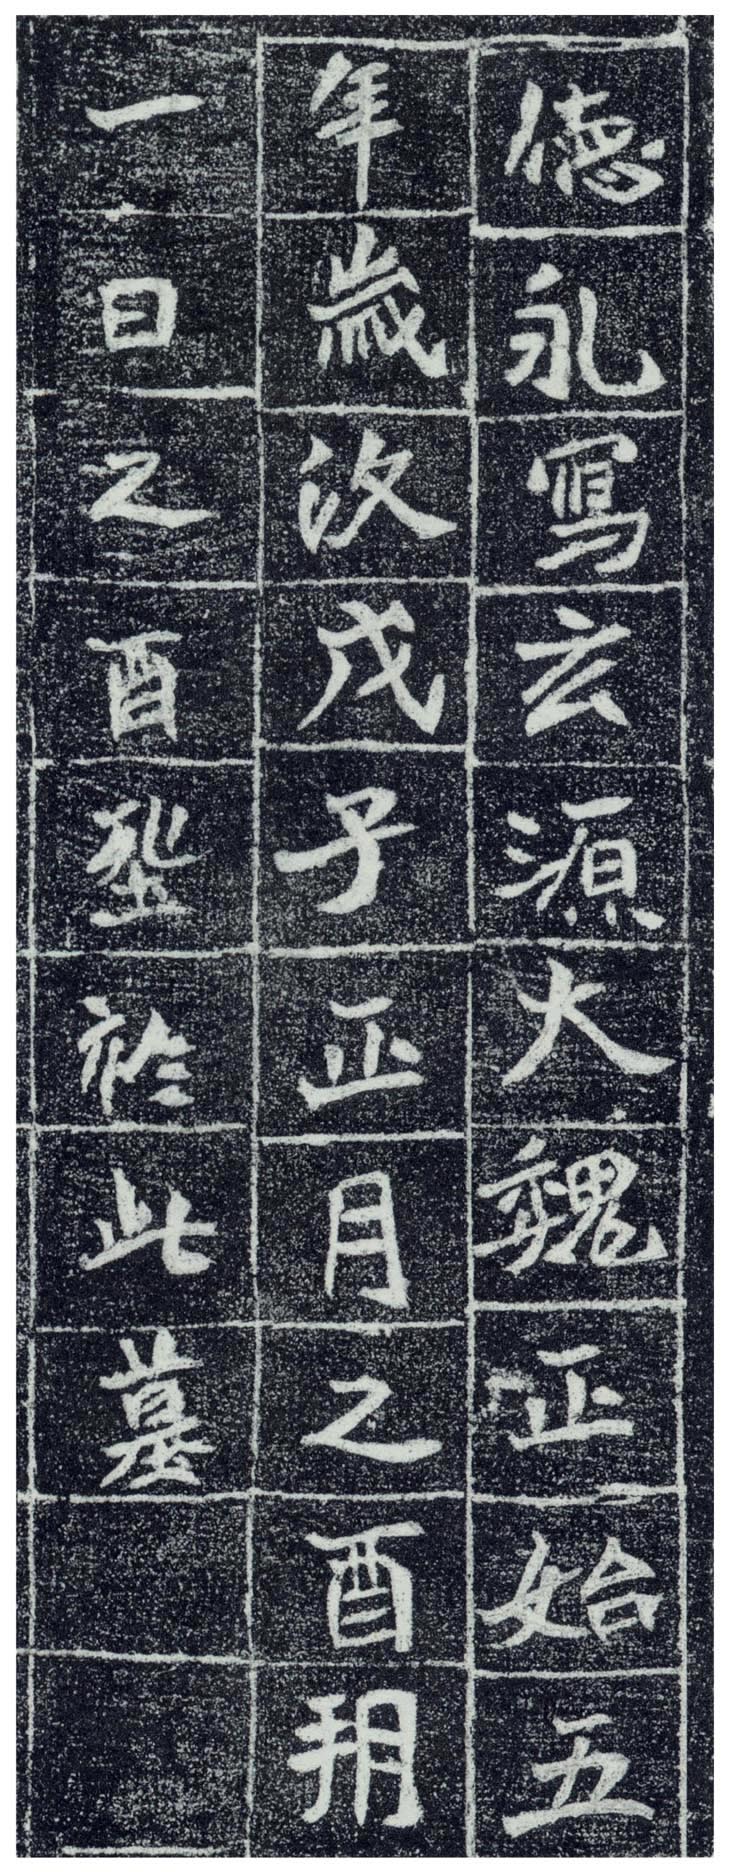 德永寫玄源大魏正始五
年歲次戊子正月之酉朔
一日之酉於此墓